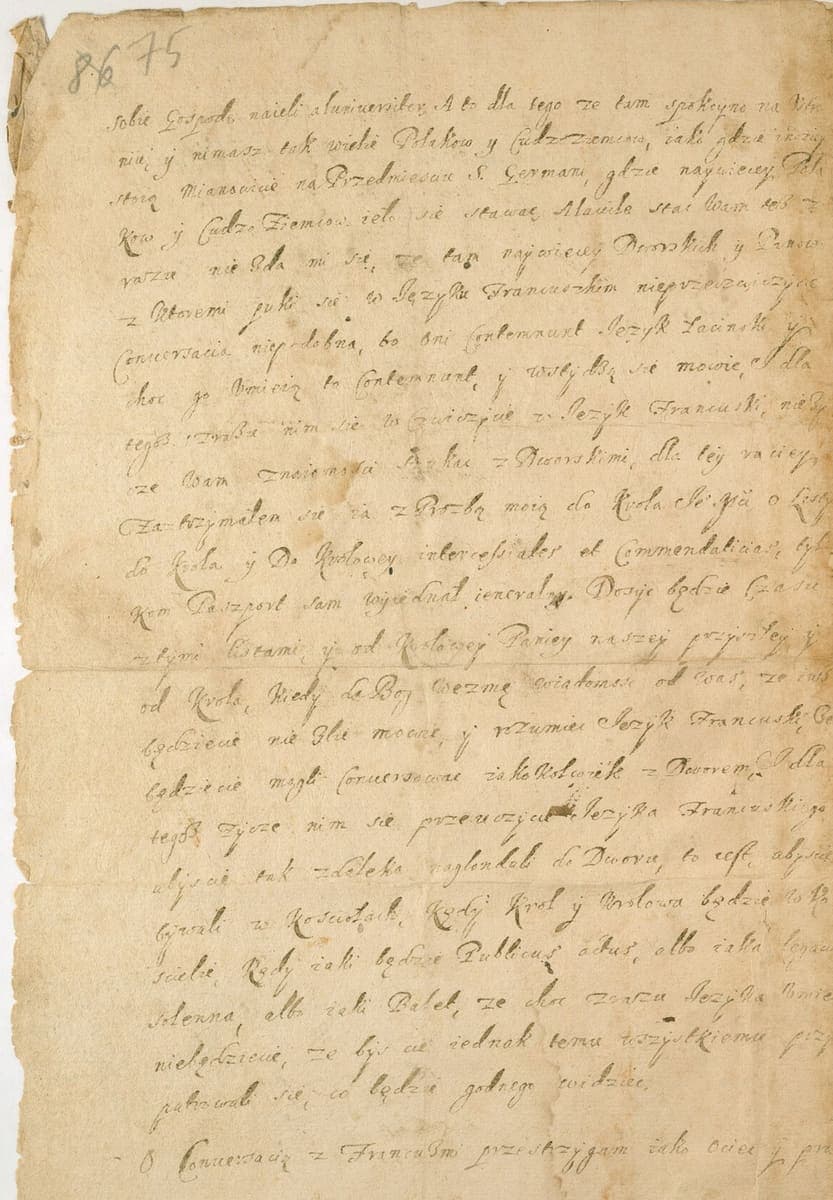 8675
sobie Gospodę naieli a luniversiter, A to dla tego ze tam spokoyno na
niey y nimasz tak wiele Polakow y Cudzoziemcow, iako gdzie
stoią Mianowicie na Przedmiesciu S. Germani, gdzie naywiecey Pola
kow y Cudzo Ziemcow, sie stawac, stac Wam też z
razu nie Zda mi się, ze tam naywiecey Dworskich y Panow
z Ktoremi puki się w Języku Francuskim nieprzecwiczycie
Conversacia niepodobna, bo Oni Contemnunt Język Łacinski y
choc go Umieią to Contemnunt, y wstydzą się mowic, I dla
tegoż zrazu nim się w Cwiczycie w Język Francuski, nie Zy
cze Wam znaiomosci szukac z Dworskimi, dla tey raciey
Zatrzymałem się ia z Prozbą moią do Krola Je Mci o Listy
do Krola y Do Krolowey intercessiales et Commendaticias, tyl
kom Paszport sam wyiednał ieneralny. Dosyc będzie Czasu
z tymi listami, y od Krolowey Paniey naszey przyszłey y
od Krola, Kiedy da Bog wezmę wiadomosc od was, ze iusz
będziecie nie Zle mowic, y rozumiec Język Francuski, Ze
będziecie mogli Conversowac iakokolwiek z Dworem, I dla
tegoż zycze nim się przeuczycie Języka Francuskiego
abyscie tak zdaleka naglondali do Dworu, to iest, abyscie
bywali w Kosciołach, Kędy Krol y Krolowa będzie w Ko
sciele, Kędy iaki będzie Publicus actus, albo iaka legacia
solenna, albo iaki Balet, ze choc zrazu Języka Umie
niebędziecie, ze bys cie iednak temu wszystkiemu przy
patrowali się, co będzie godnego widziec.
O Conversacią z Francuzmi przestrzygam iako Ociec y